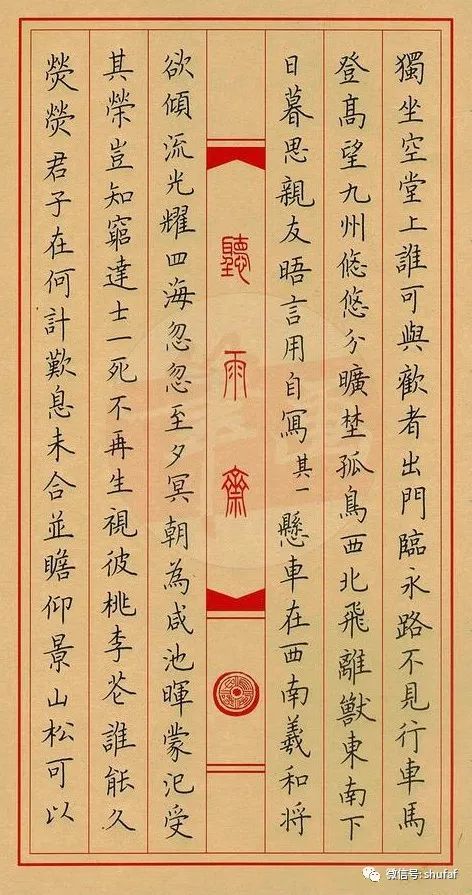 獨坐空堂上誰可與歡者出門臨永路不見行車馬
登高望九州悠悠分曠埜孤鳥西北飛離獸東南下
日暮思親友晤言用自寫其一懸車在西南羲和将
聽雨齋
欲傾流光耀四海忽忽至夕冥朝為咸池暉蒙汜受
其榮豈知窮達士一死不再生視彼桃李花誰能久
熒熒君子在何計歎息未合並瞻仰景山松可以
微信号: shufaf